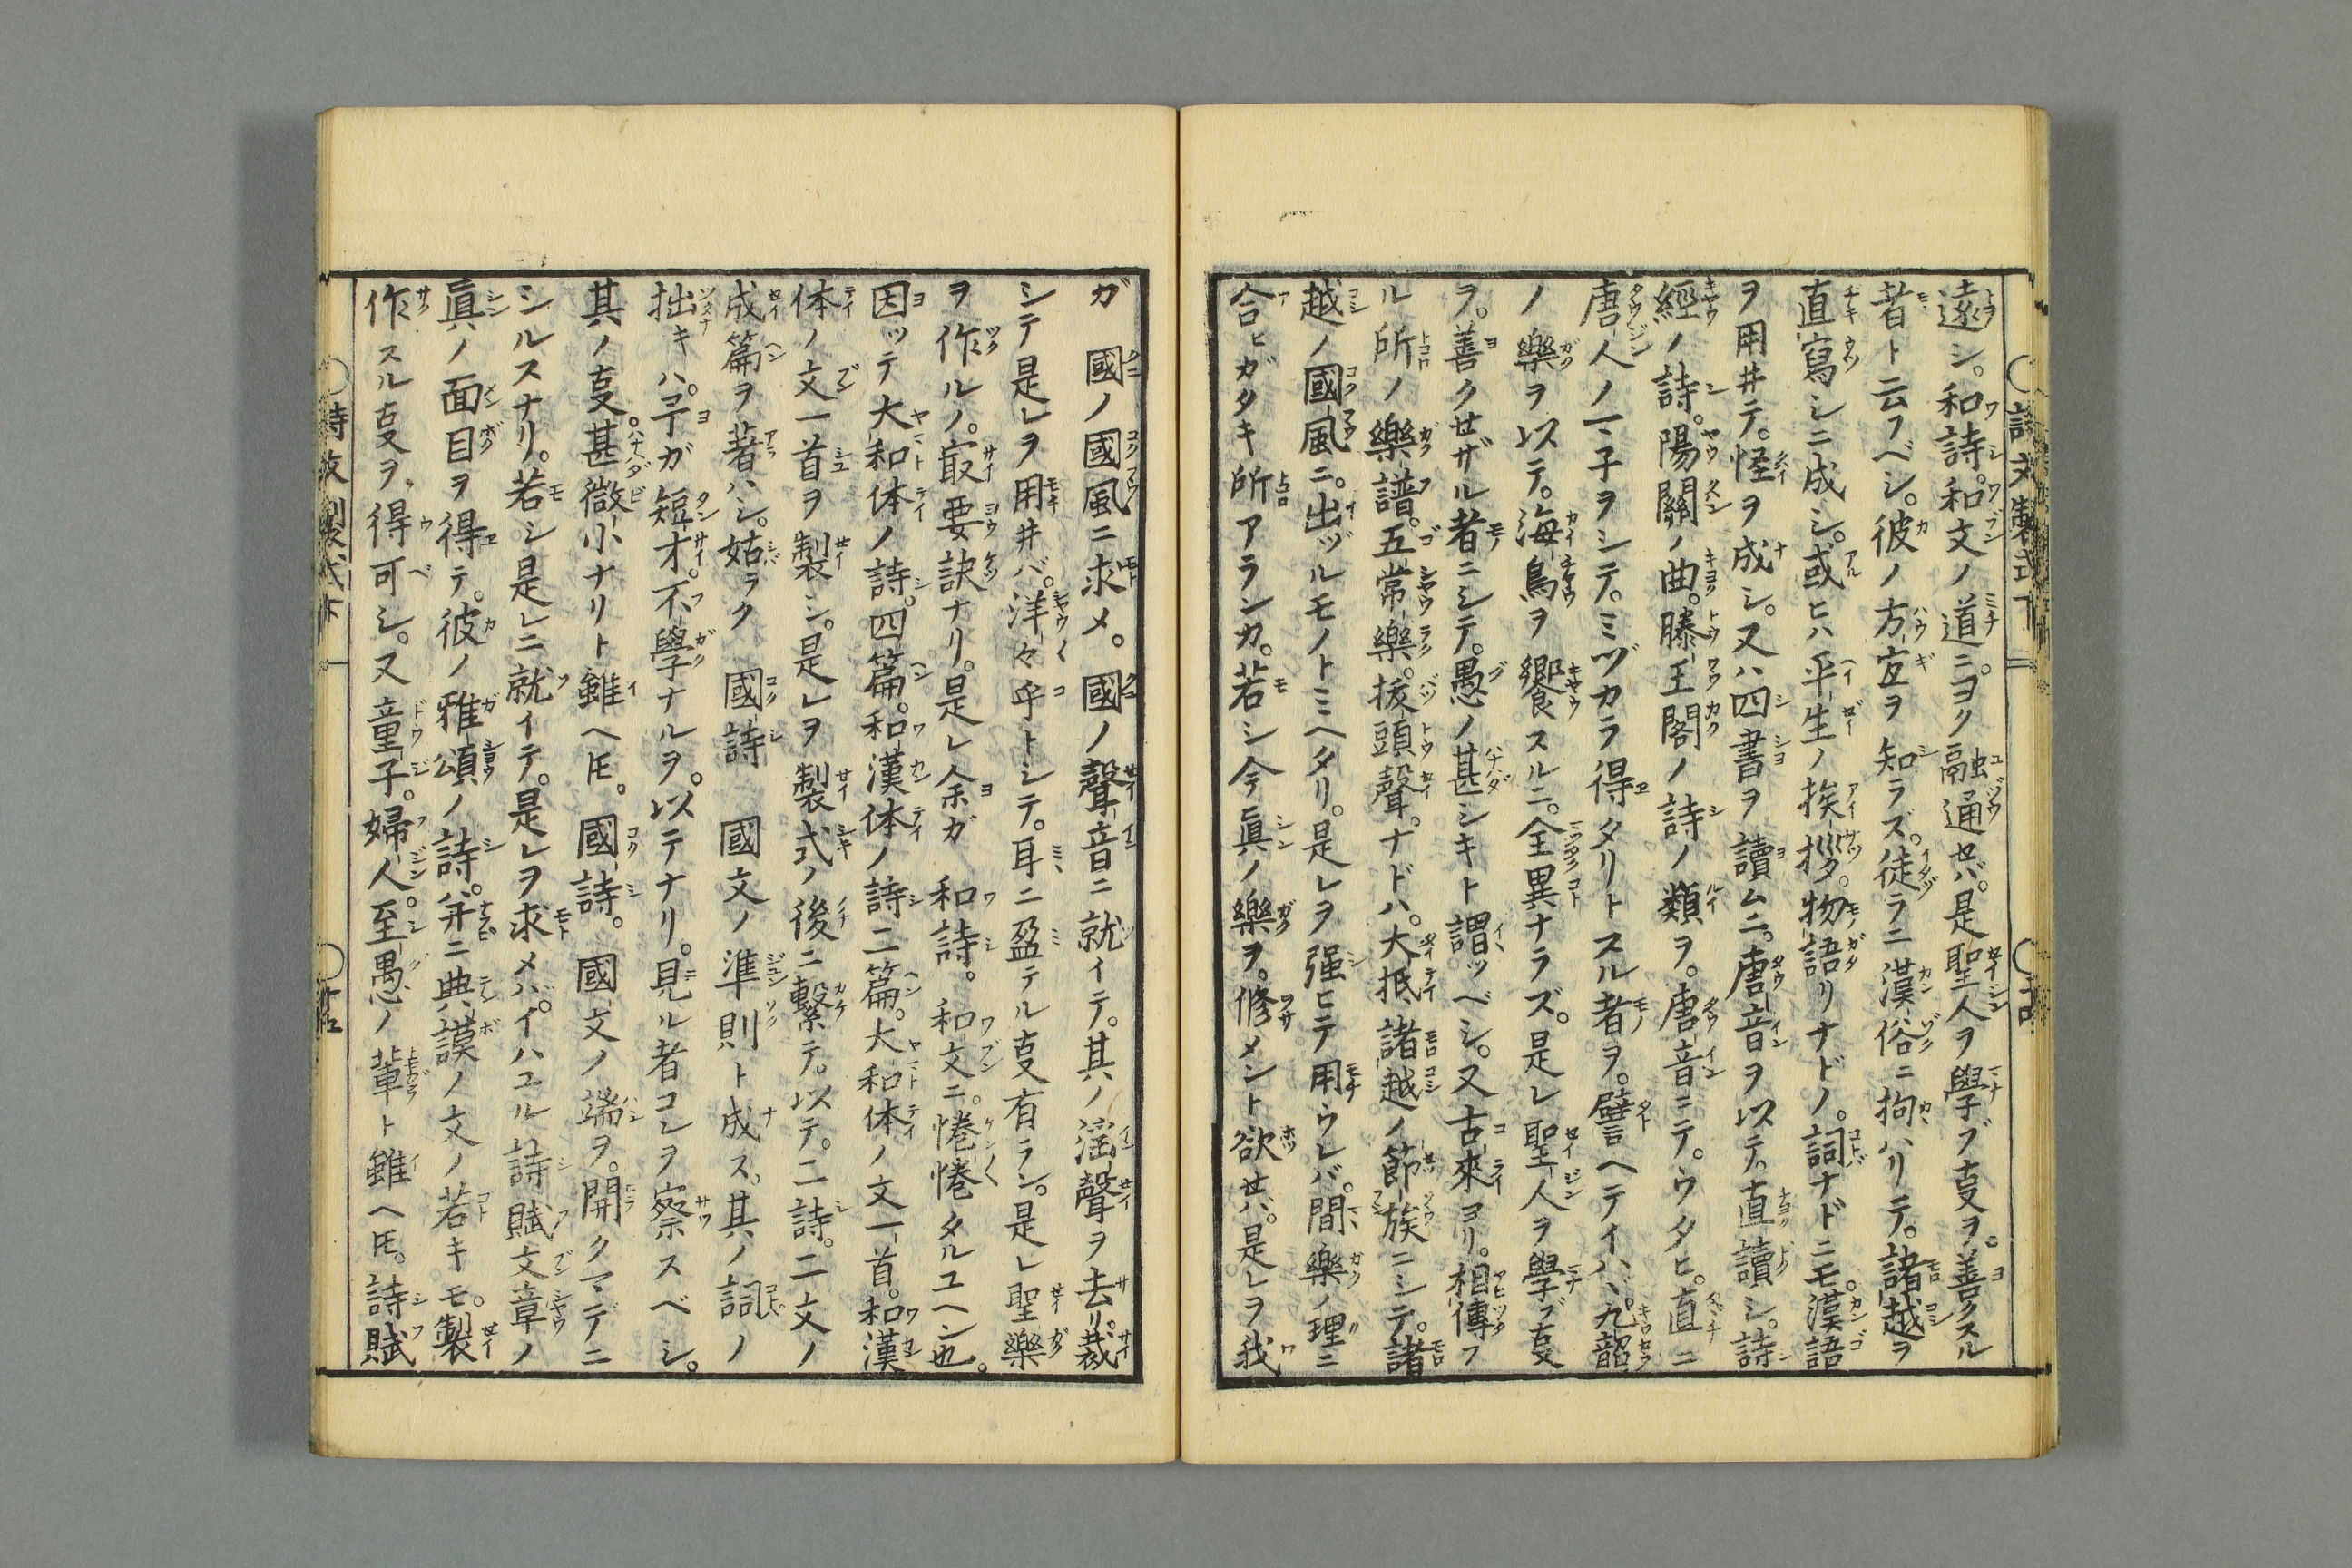 詩文製式下
遠シ。和詩。和文ノ道ニ。ヨク融通セバ。是聖人ヲ學ブ叓ヲ。善クスル
者ト云フベシ。彼ノ方宜ヲ知ラズ。徒ラニ漢俗ニ拘ハリテ。諸越ヲ
直寫シニ成シ。或ヒハ平生ノ挨拶。物語リナドノ。詞ナドニモ。漢語
ヲ用井テ。怪ヲ成シ。又ハ四書ヲ讀ムニ。唐音ヲ以テ。直讀シ。詩
經ノ詩。陽關ノ曲。滕王閣ノ詩ノ類ヲ。唐音ニテ。ウタヒ。直ニ
唐人ノ一子ヲシテ。ミヅカラ得タリトスル者ヲ。譬ヘテイハヾ。九韶
ノ樂ヲ以テ。海鳥ヲ饗スルニ。全異ナラズ。是レ聖人ヲ學ブ叓
ヲ。善クセザル者ニシテ。愚ノ甚シキト謂ツベシ。又古來ヨリ。相傳フ
ル所ノ樂譜。五常樂。拔頭聲。ナドハ。大抵諸越ノ節族ニシテ。諸
越ノ國風ニ。出ヅルモノトミヘタリ。是レヲ强ヒテ用ウレバ。間樂ノ理ニ
合ヒガタキ所アランカ。若シ今眞ノ樂ヲ。修メント欲セバ。是レヲ我
ガ國ノ國風ニ求メ。國ノ聲音ニ就イテ。其ノ淫聲ヲ去リ。裁
シテ是レヲ用井バ。洋々乎トシテ。耳ニ盈テル叓有ラン。是レ聖樂
ヲ作ルノ。㝡要訣ナリ。是レ余ガ和詩。和文ニ。惓惓タルユヘン也。
因ッテ大和体ノ詩。四篇。和漢体ノ詩二篇。大和体ノ文一首。和漢
体ノ文一首ヲ製シ。是レヲ製式ノ後ニ繫テ。以テ。二詩。二文ノ
成篇ヲ著ハシ。姑ラク國詩國文ノ準則ト成ス。其ノ詞ノ
拙キハ。予ガ短才。不學ナルヲ。以テナリ。見ル者コレヲ察スベシ。
其ノ叓。甚微小ナリト雖ヘ𪜈。國詩。國文ノ端ヲ。開クマデニ
シルスナリ。若シ是レニ就イテ。是レヲ求メバ。イハユル詩賦文章ノ
眞ノ面目ヲ得テ。彼ノ雅頌ノ詩。幷ニ典謨ノ文ノ若キモ。製
作スル叓ヲ。得可シ。又童子。婦人。至愚ノ輩ト雖ヘ𪜈。詩賦